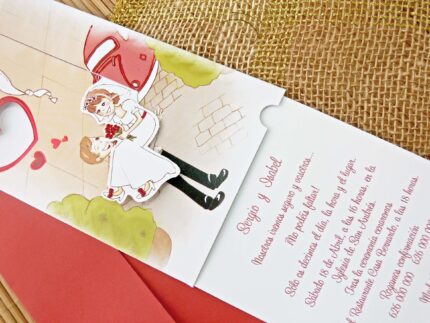 Sergio y Isabel
Nosotros iremos seguro y vosotros...
¡No podéis faltar!
Sólo os decimos el día, la hora y el lugar.
Sábado 18 de Abril, a las 16 horas, en la
Iglesia de San Andrés.
Tras la ceremonia cenaremos
el Restaurante Casa Bernardo, a las 18 horas.
Rogamos confirmación
626 000 000 626 000 000